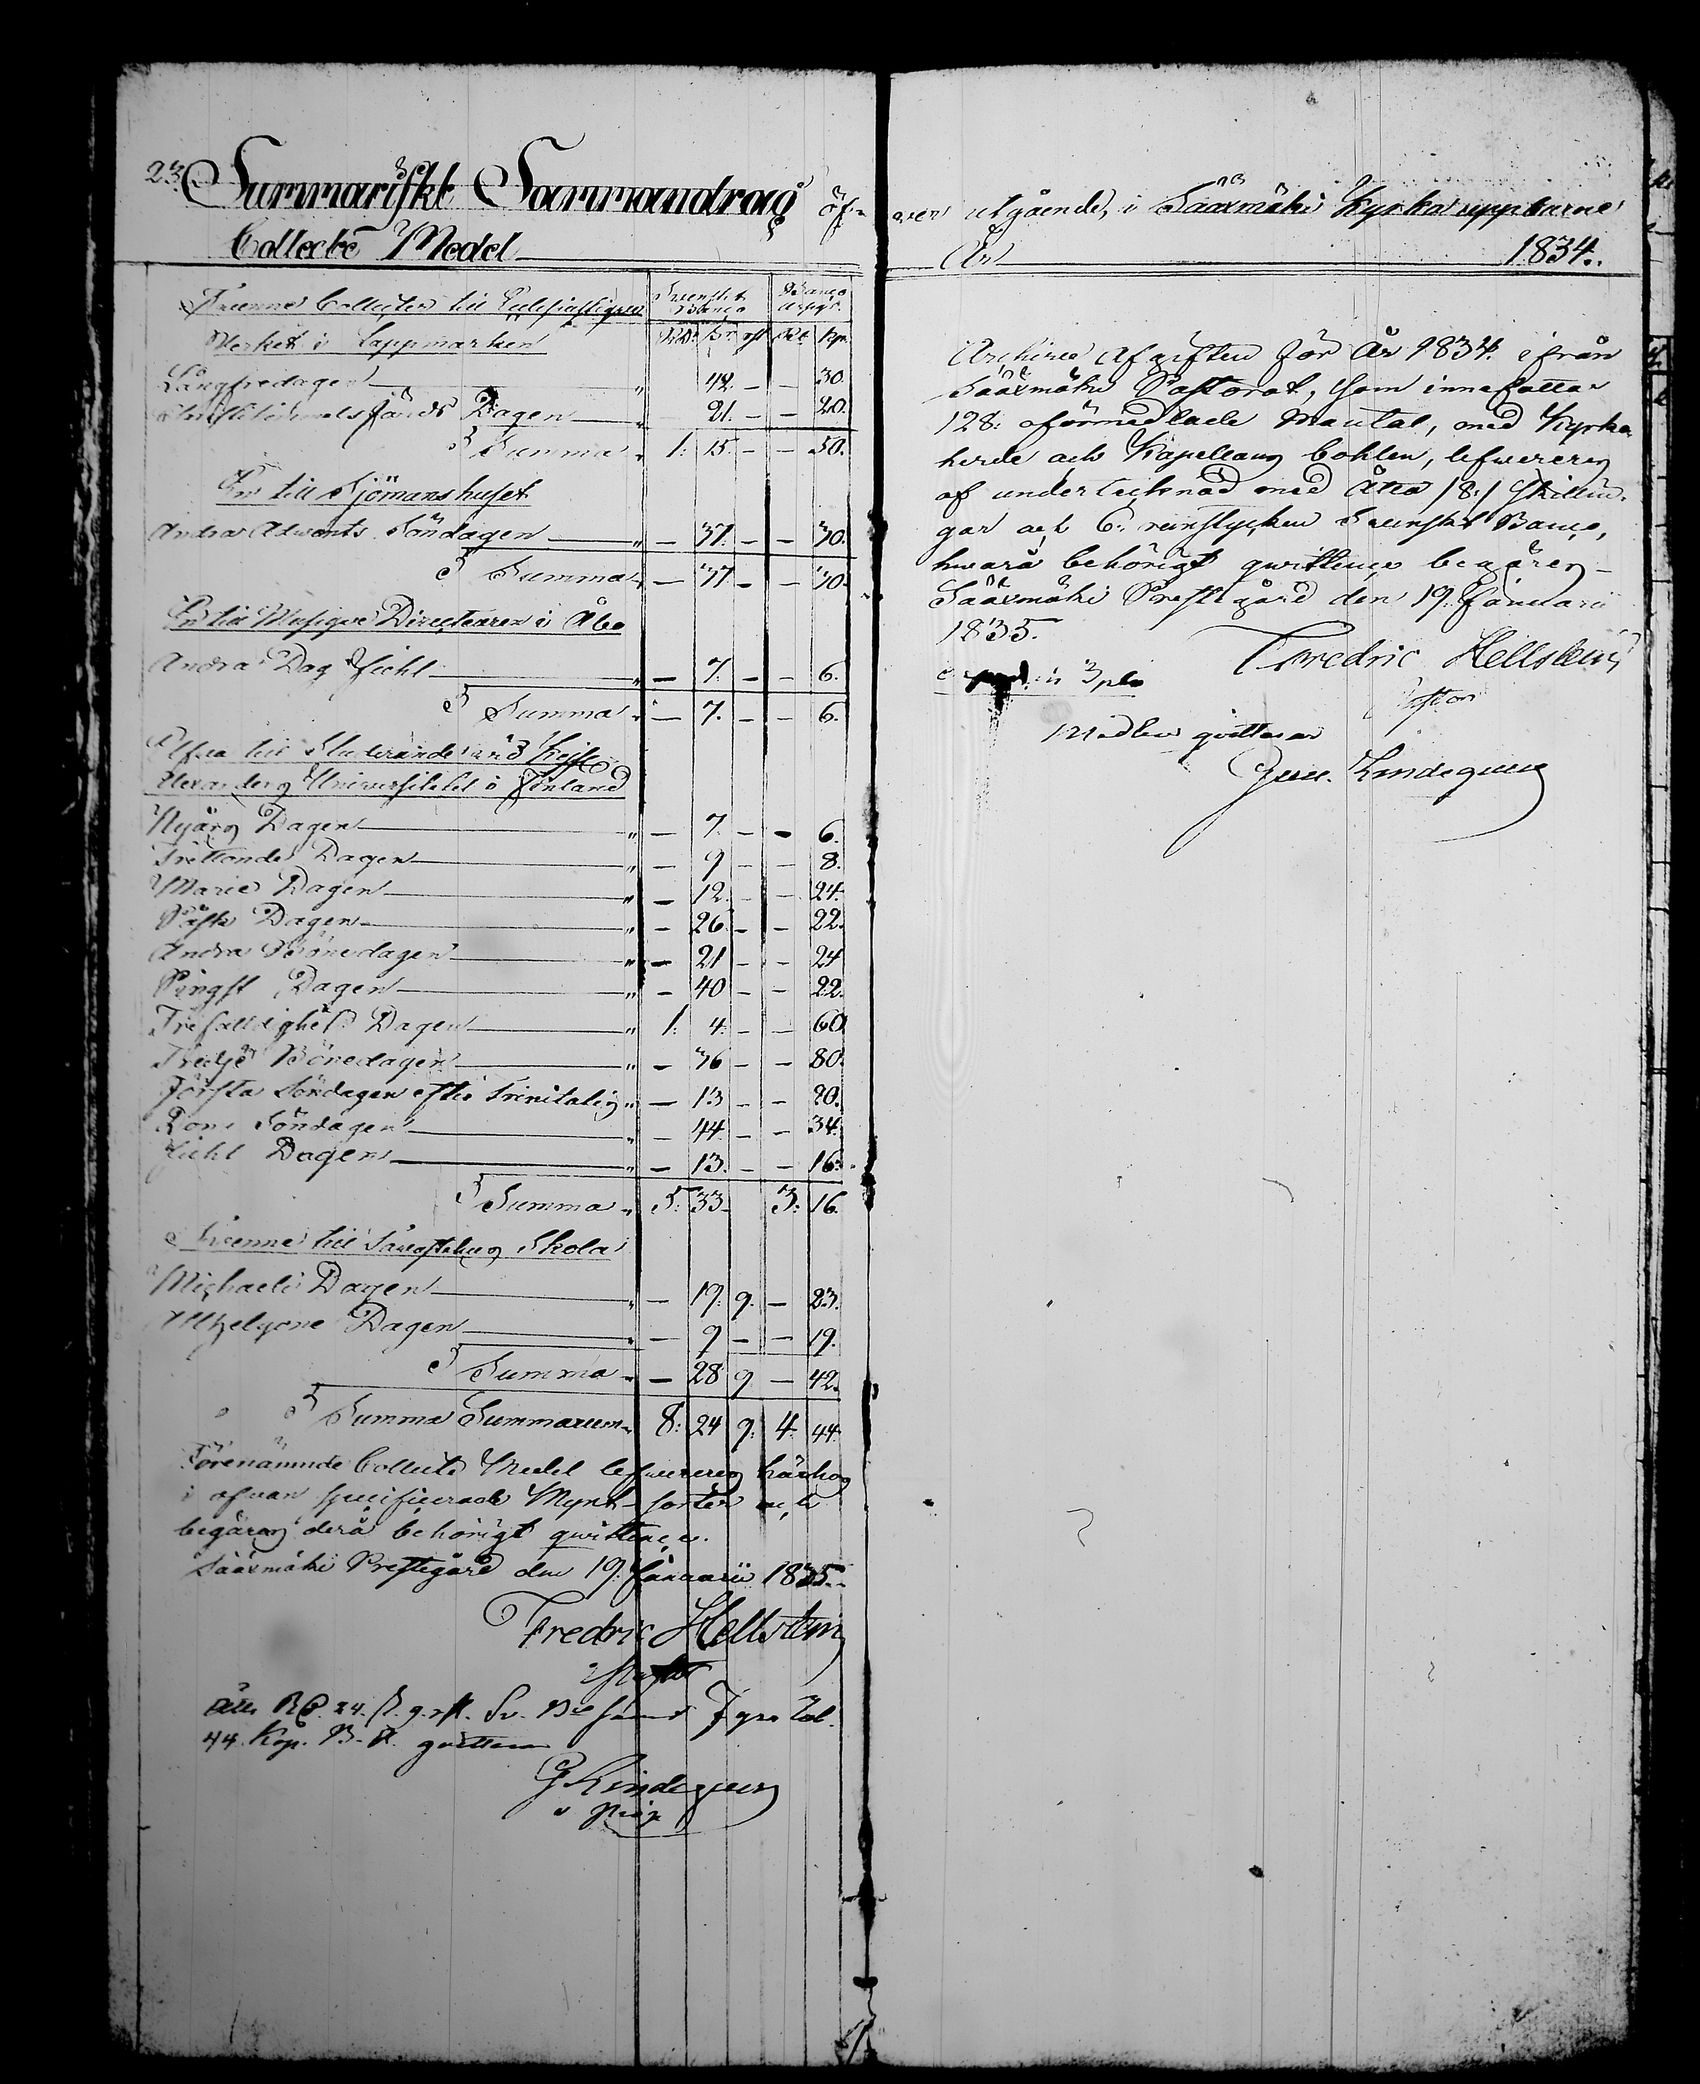 23. Summariskt Sammandrag öf-
wer utgående, i Sääxmäki Kyrka uppburne
Collecte Medel
År 1834.
Trenne Collecter till Ecclesiastique
Svenskt Banco
Banco Assign.
Werket i Lappmarken
RD. sk. rst. Rl. Kp.
Långfredagen " 42. – – 30.
Dagen " 21. – – 20.
Summa " 1: 15. – – 50.
En till Sjömanshuset
Andra Advents Söndagen " – 37. – – 30.
Summa " – 37 – – 30.
En till Musique Directeuren i Åbo
Andra Dag Juhl " – 7. – – 6.
Summa " – 7. – – 6.
till Studerande wid Kejs.
Alexanders Universitetet i Finland
Nyårs Dagen " – 7. – – 6.
Trettonde Dagen " – 9 – – 8.
Marie Dagen " – 12. – – 24.
Påsk Dagen " – 26 – – 22.
Andra Bönedagen " – 21 – – 24
Pingst Dagen " – 40 – – 22.
Trefaldighets Dagen " 1: 4. – – 60
Tredje Bönedagen " – 36 – – 80.
Första Söndagen efter Trinitatis " – 13 – – 20.
Bone Söndagen " – 44 – – 34.
Juhl Dagen " – 13. – – 16.
Summa " 5: 33 – 3: 16.
Twenne till Tavastehus Skola
Michaeli Dagen " – 19. 9. – 23.
Allhelgone Dagen " – 9 – – 19.
Summa " – 28 9 – 42.
Summa Summarum " 8: 24 9: 4. 44.
Förenämnde Collecte Medel lefwereras härhos
i ofvan specificerade Myntsorter och
begäres derå behörigt qwittence.
Sääxmäki Prestegård den 19. Januarii 1835.
Fredric Hellsten
Pastor
Åtta RD. 24. s. 9. rst. Sv. Bco samt Fyra Rbl.
44. Kop. B. A. qvitteras
G Lindegren
v Præp
Archive Afgiften för År 1834. ifrån
Sääxmäki Pastorat, som innefattar
128: oförmedlade Mantal, med Kyrko-
herde och Kapellans bohlen, lefwereres
af undertecknad med Åtta /8:/ Skillin-
gar och 6. runstycken Svenskt Banco,
hwarå behörigt qwittence begäres –
Sääxmäki Prestegård den 19. Januarii
1835.
Fredric Hellsten
Pastor
in 3plo
Medlen qvitteras
Gust. Lindegren